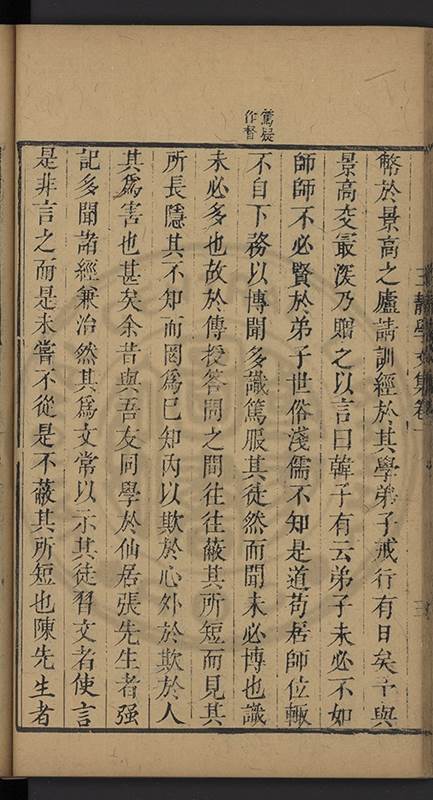 篤疑
作督
幣於景高之廬請訓經於其學弟子戒行有日矣予與
景高交最深乃贈之以言曰韓子有云弟子未必不如
師師不必賢於弟子世俗淺儒不知是道苟居師位輙
不自下務以博聞多識篤服其徒然而聞未必博也識
未必多也故於傳授答問之間往往蔽其所短而見其
所長隱其不知而罔爲巳知內以欺於心外於欺於人
其爲害也甚矣余昔與吾友同學於仙居張先生者强
記多聞諸經兼治然其爲文常以示其徒習文者使言
是非言之而是未嘗不從是不蔽其所短也陳先生者
王靜學文集卷
三